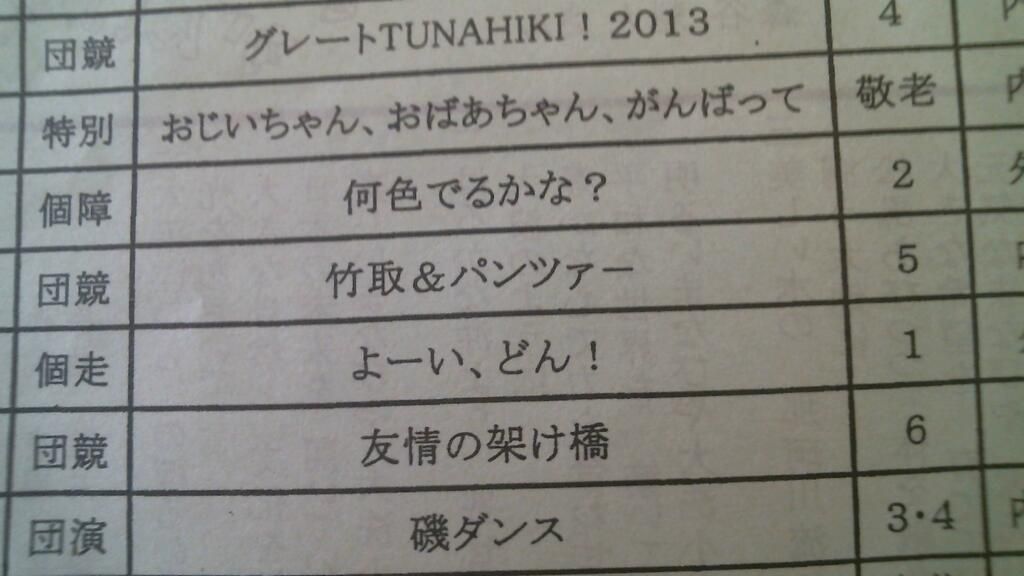 団競 グレートTUNAHIKI！2013 4
特別 おじいちゃん、おばあちゃん、がんばって 敬老
個障 何色でるかな？ 2
団競 竹取＆パンツァー 5
個走 よーい、どん！ 1
団競 友情の架け橋 6
団演 磯ダンス 3・4